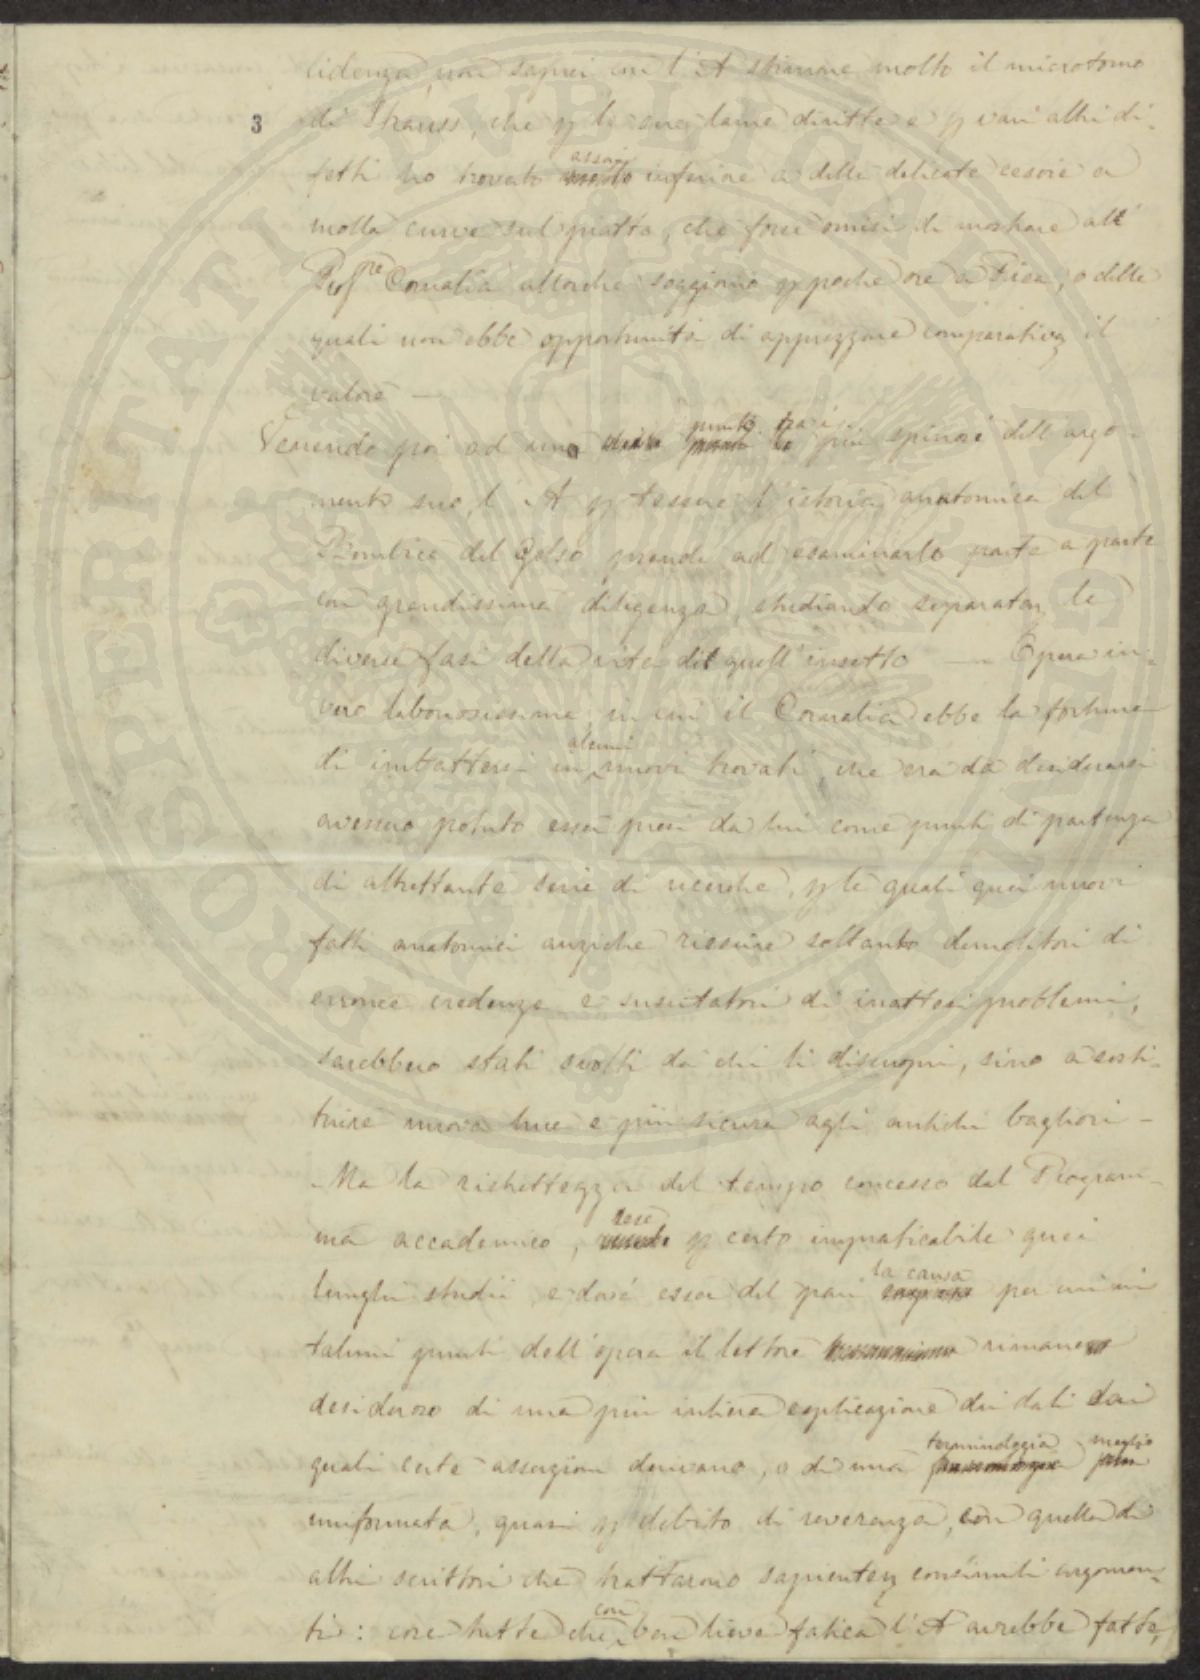 lidenza, non saprei con l'A stimare molto il microtomo
3 di Strauss, che p le sue lame diritte e p vari altri di-
fetti ho trovato assai inferiore a delle delicate cesoie a
molla curve sul piatto, che forse omisi di mostrare all'
Profre Cornalia allorche soggiornò p poche ore a Pisa, o delle
quali non ebbe opportunità di apprezzare comparativa il
valore —
Venendo poi ad uno punto tra i più spinosi dell'argo-
mento suo, l'A p tessere l'istoria anatomica del
Bombice del Gelso prende ad esaminarlo parte a parte
con grandissima diligenza, studiando separata le
diverse fasi della vita di quell'insetto — Opera in-
vero laboriosissima, in cui il Cornalia ebbe la fortuna
di imbattersi in alcuni nuovi trovati, che era da desiderarsi
avessero potuto esser presi da lui come punti di partenza
di altrettante serie di ricerche, p le quali quei nuovi
fatti anatomici anziche riescire soltanto demolitori di
erronee credenze e suscitatori di inattesi problemi,
sarebbero stati svolti da chi li discuoprì, sino a sosti-
tuire nuova luce e più sicura agli antichi bagliori —
Ma la ristrettezza del tempo concesso dal Program-
ma accademico, rese p certo impraticabile quei
lunghi studii, e dové esser del pari la causa per cui in
taluni punti dell'opera il lettore rimane
desideroso di una più intiera esplicazione dei dati dai
quali certe asserzioni derivano, o di una terminologia meglio
uniformata, quasi p debito di reverenza, con quella di
altri scrittori che trattarono sapiente consimili argomen-
ti: cose tutte che con ben lieve fatica l'A avrebbe fatte,